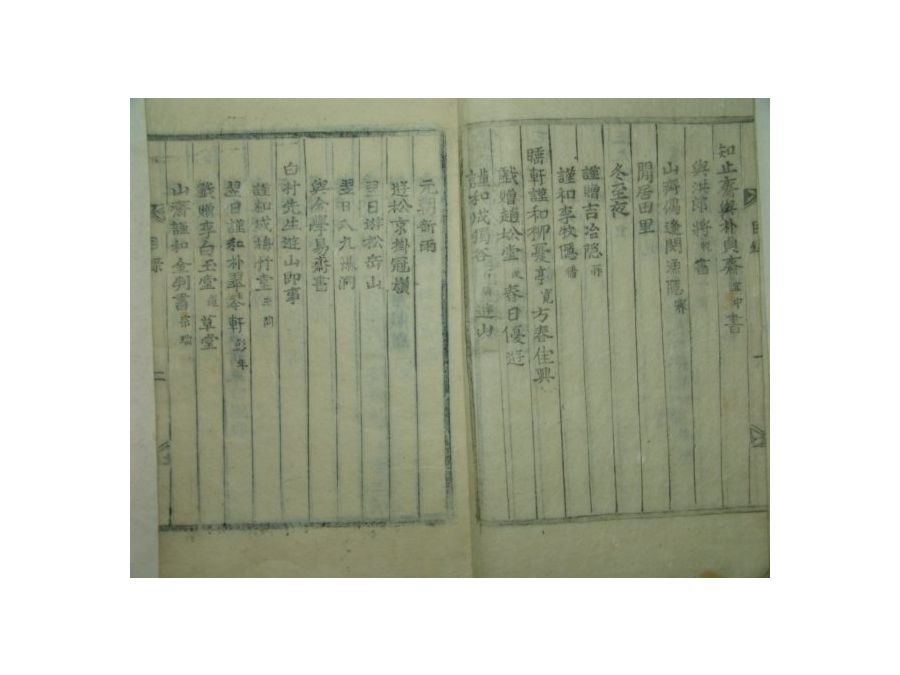 目錄
知止齋與朴貞齋宜中書
與洪郎將書
山齋偶逢閔漁隱霽
閒居田里
冬至夜
謹贈吉冶隱再
謹和李牧隱穡
睡軒謹和柳憂亭寬方春佳興
戱贈趙松堂浚春日優遊
謹和成獨谷石璘遊山
元朝新雨
遊松京掛冠嶺
翌日遊松岳山
翌日入九曲洞
與金學易齋書
白村先生遊山即事
謹和成梅竹堂三問
翌日謹和朴翠琴軒彭年
戱贈李白玉堂草堂
山齋謹和金判書宗瑞
目錄
二